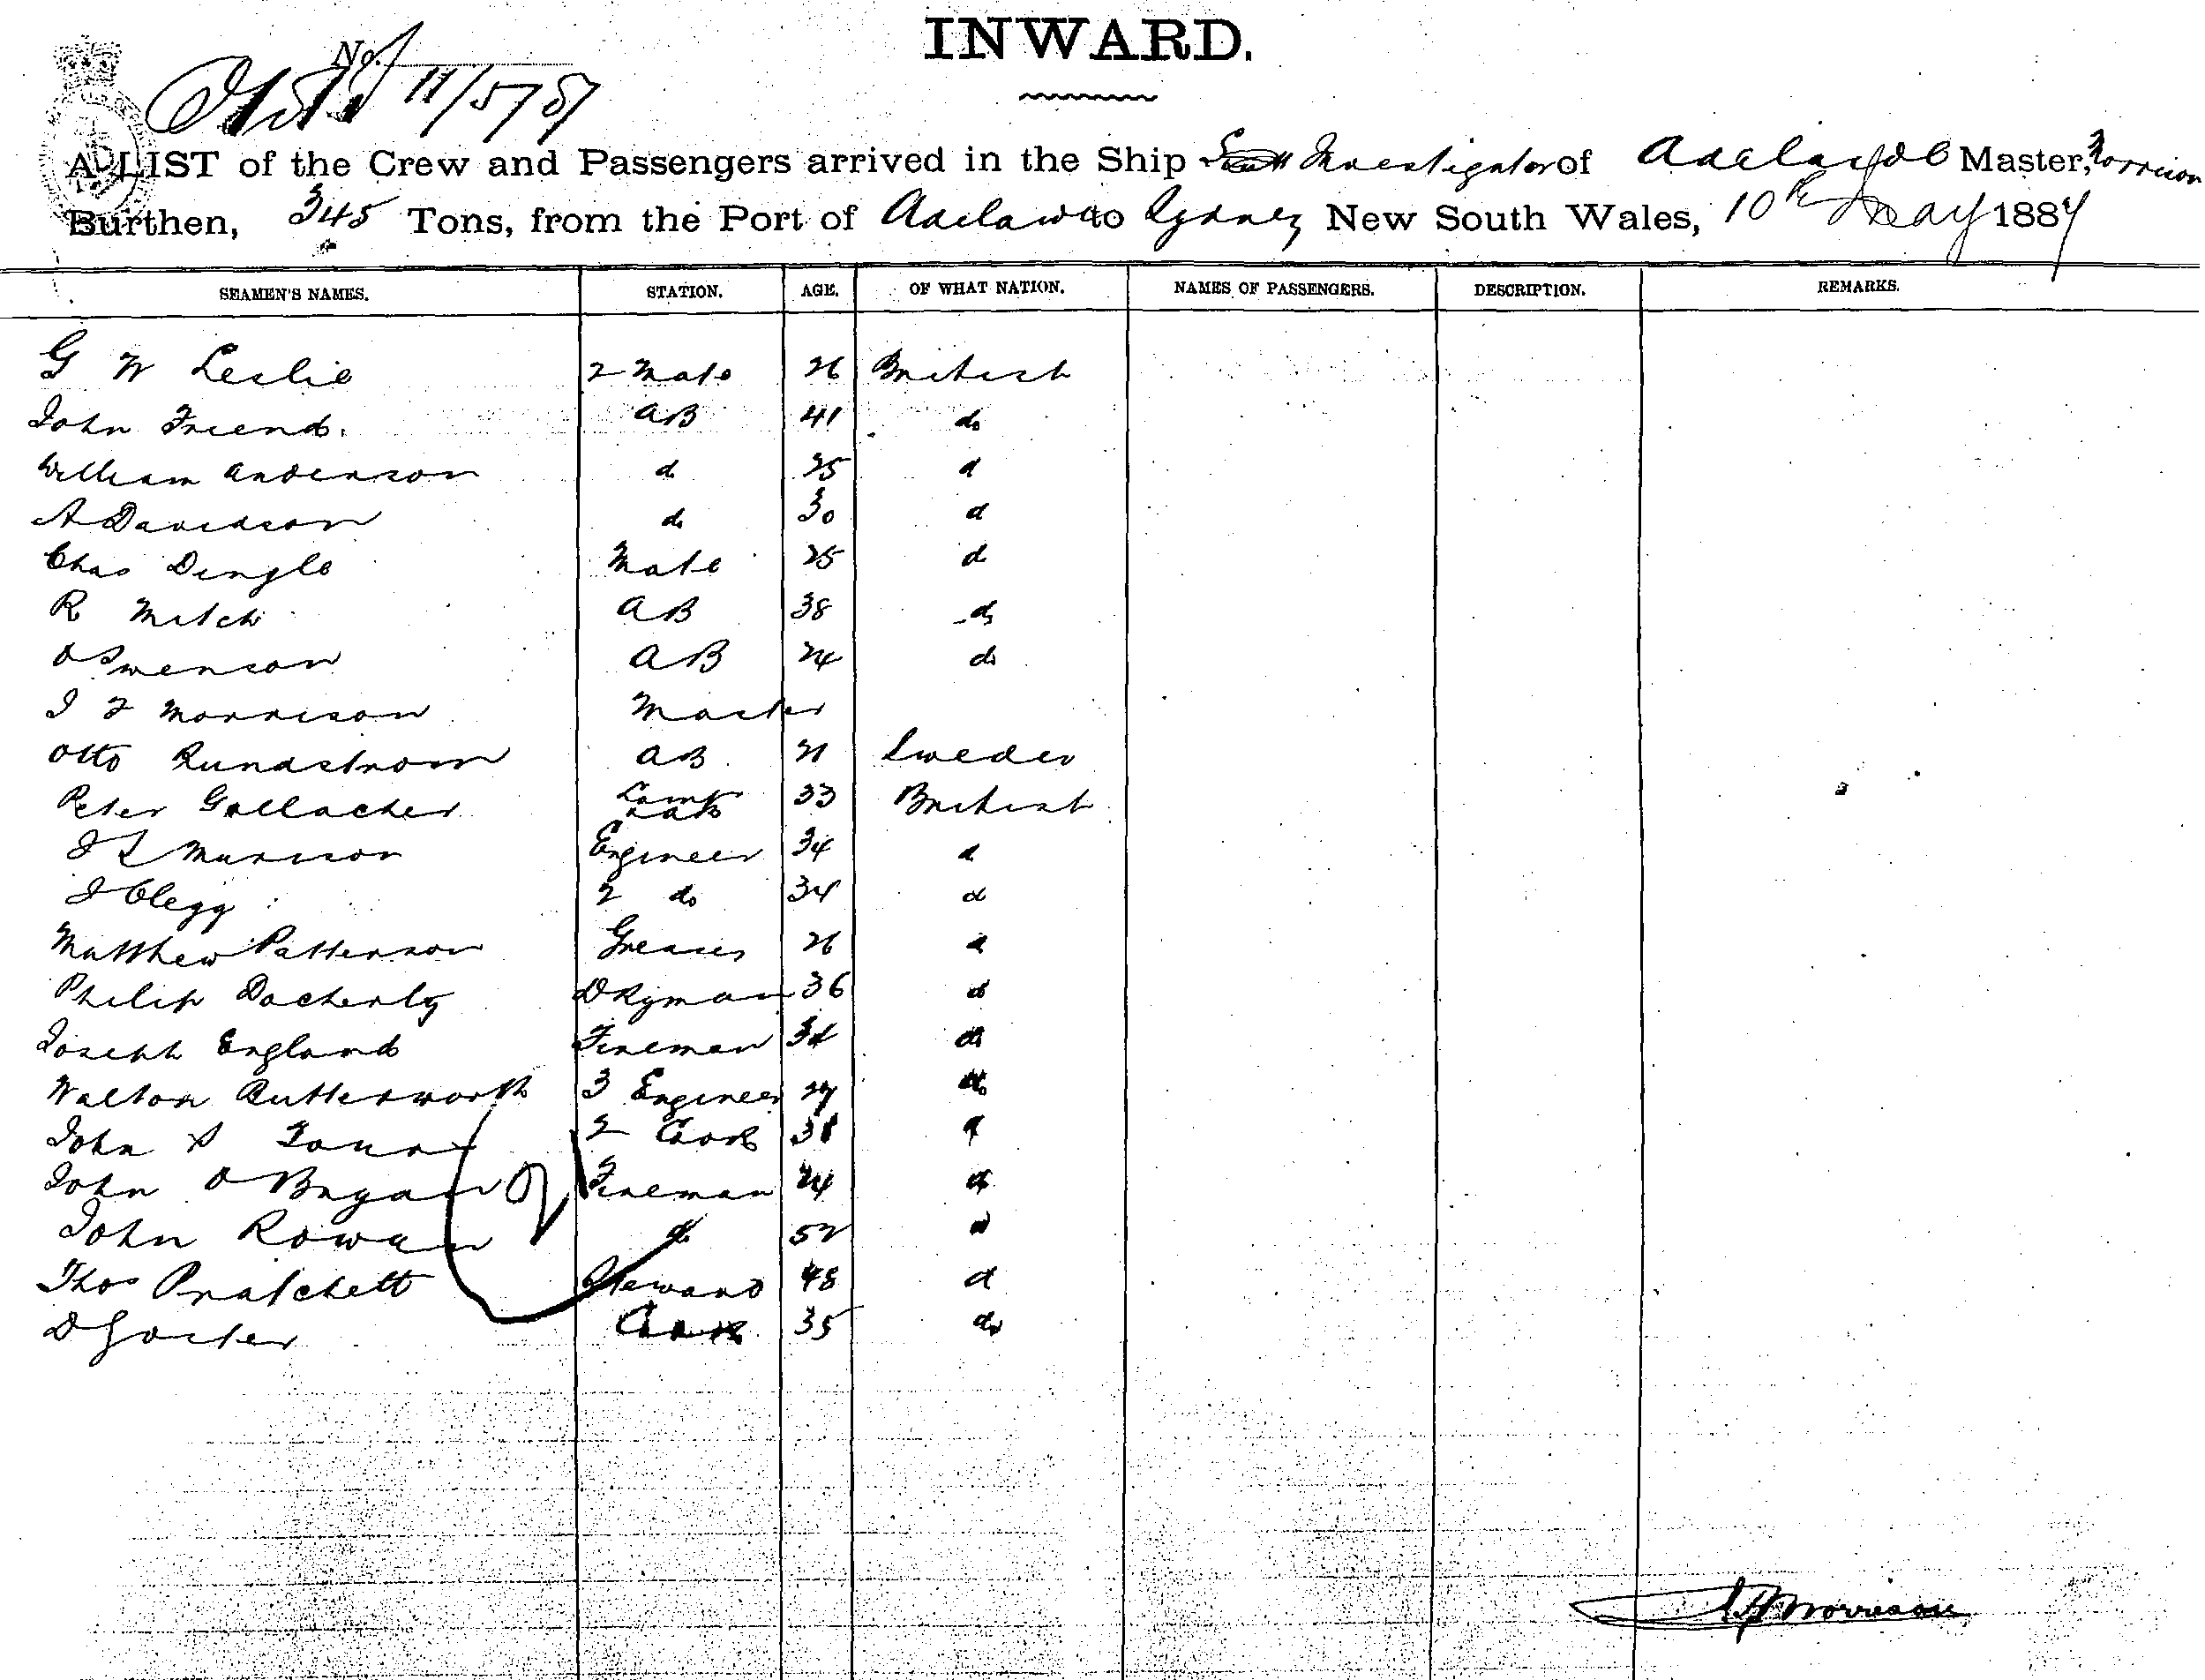 INWARD.
No.
11/5/87
A LIST of the Crew and Passengers arrived in the Ship Investigator of Adelaide Master, Morrison
Burthen, 345 Tons, from the Port of Adelaide to Sydney New South Wales, 10th May 1887
SEAMEN'S NAMES. STATION. AGE. OF WHAT NATION. NAMES OF PASSENGERS. DESCRIPTION. REMARKS.
G W Leslie 2 Mate 26 British
John Friend. AB 41 do
William Anderson d 25 d
A Davidson d 30 d
Chas Dingle Mate 25 d
R Mitch AB 38 do
O Swenson AB 24 do
J F Morrison Master
Otto Rundstrom AB 21 Sweden
Peter Gallacher Lamp 33 British
J L Murison Engineer 34 d
J Clegg 2 do 34 d
Matthew Patterson Greaser 26 d
Philip Docherty DKyman 36 d
Joseph England Fireman 34 do
Walton Butterworth 3 Engineer 27 do
John 2 Cook 38 d
John O Bryan Fireman 24 d
John Rowan d 52 d
Thos Pratchett Steward 48 d
D Cook 35 do
J F Morrison